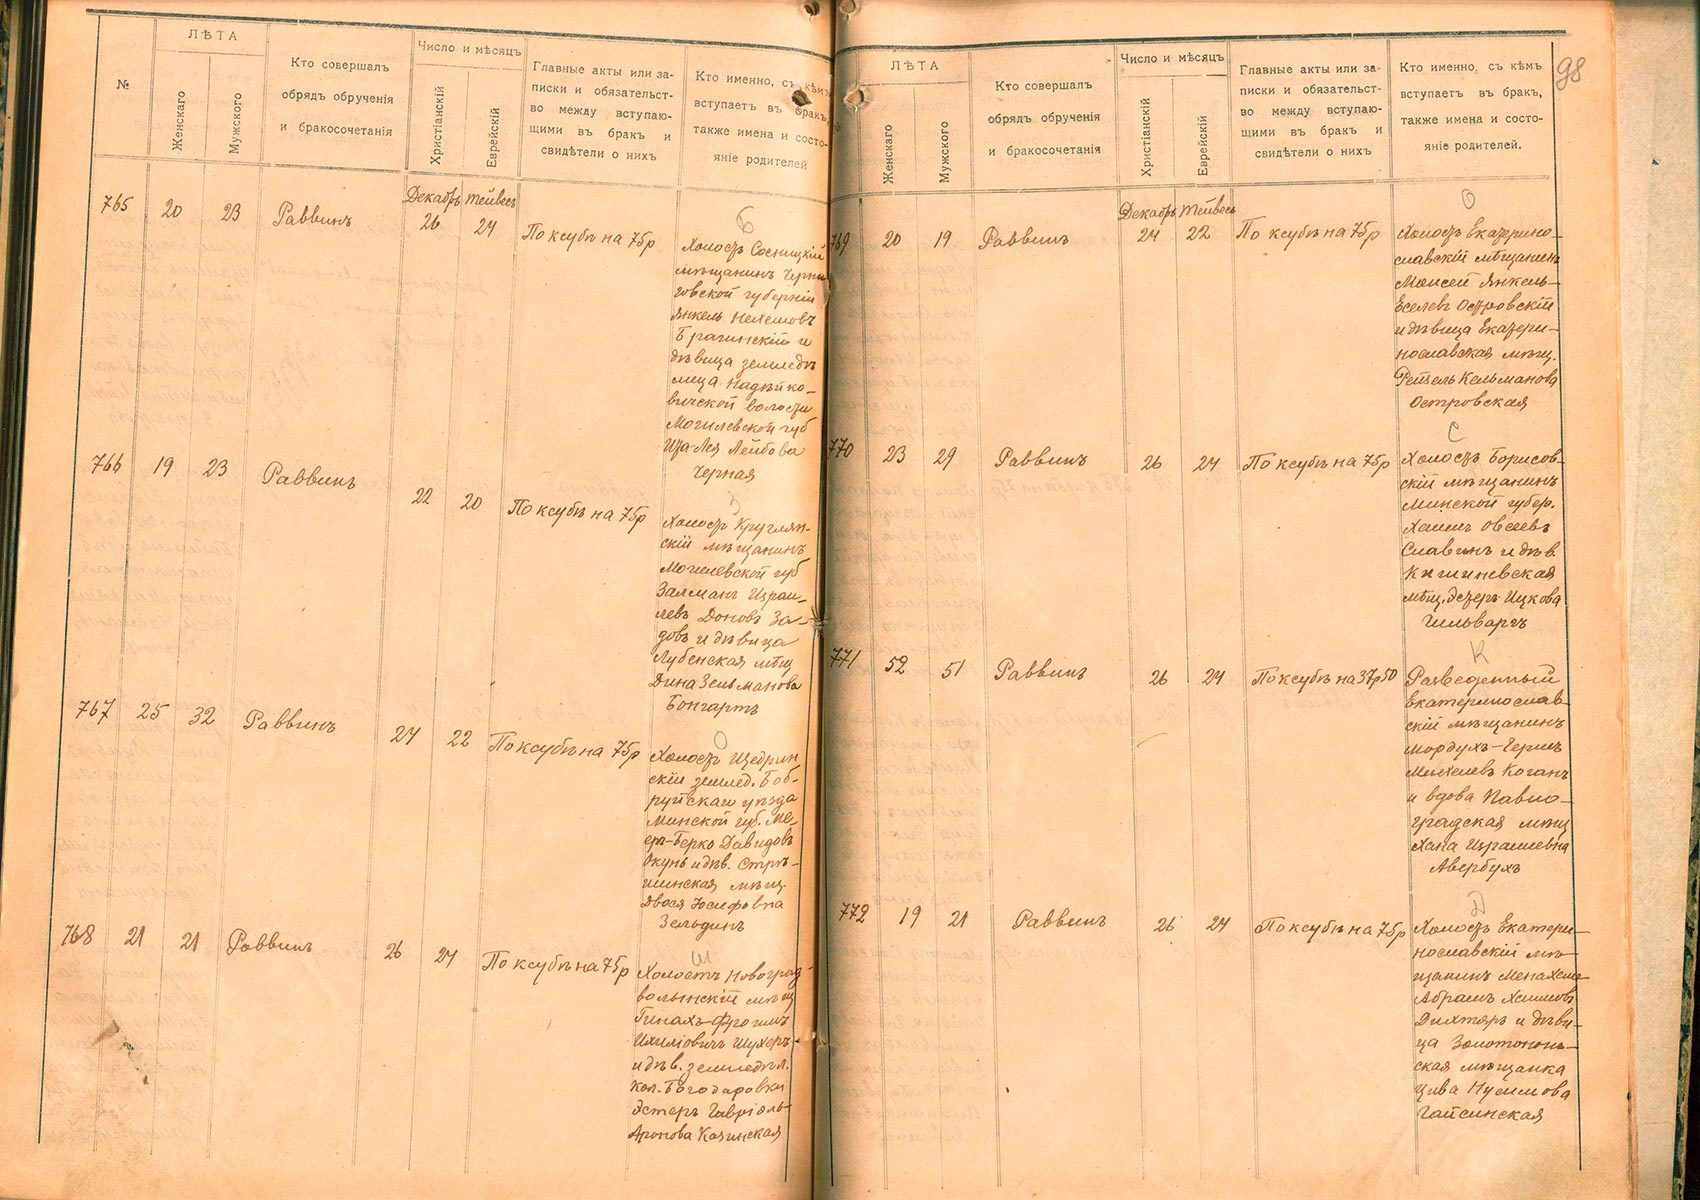 №
ЛѢТА
Женскаго
Мужского
Кто совершалъ
обрядъ обрученія
и бракосочетанія
Число и мѣсяцъ
Христіанскій
Еврейскій
Главные акты или за-
писки и обязательст-
во между вступаю-
щими въ бракъ и
свидѣтели о нихъ
Кто именно, съ кѣмъ
вступаетъ въ бракъ,
также имена и состо-
яніе родителей
765
20
23
Раввинъ
Декабрь
26
Тейвесъ
24
По ксубѣ на 75р
Б
Холостъ Сосницкій
мѣщанинъ Черни
говской губерніи
Янкель Нехемовъ
Брагинскій и
дѣвица земледѣ
лица Надѣйко-
вичской волости
Могилевской губ
Ита-Лея Лейбова
Черная
766
19
23
Раввинъ
22
20
По ксубѣ на 75р
З
Холостъ Круглян-
скій мѣщанинъ
Могилевской губ
Залманъ Израи-
левъ Доновъ За-
довъ и дѣвица
Лубенская мѣщ
Дина Зельманова
Бонгартъ
767
25
32
Раввинъ
24
22
По ксубѣ на 75р
О
Холостъ Щедрин
скій землед. Боб-
руйскаго уѣзда
Минской губ. Ме-
еръ-Берко Давидовъ
Окунь и дѣв.
шинская мѣщ.
Двося Іосифовна
Зельдинъ
768
21
21
Раввинъ
26
24
По ксубѣ на 75р
Ш
Холостъ Новоград-
волынскій мѣщ
Фроимъ
Ихиліовичъ Шухеръ
и дѣв. земледѣл.
кол. Богодаровки
Эстеръ Гавріэль-
Аронова Казинская
98
ЛѢТА
Женскаго
Мужского
Кто совершалъ
обрядъ обрученія
и бракосочетанія
Число и мѣсяцъ
Христіанскій
Еврейскій
Главные акты или за-
писки и обязательст-
во между вступаю-
щими въ бракъ и
свидѣтели о нихъ
Кто именно, съ кѣмъ
вступаетъ въ бракъ,
также имена и состо-
яніе родителей.
769
20
19
Раввинъ
Декабрь
24
Тейвесъ
22
По ксубѣ на 75р
О
Холостъ Екатерино-
славскій мѣщанинъ
Моисей Янкель-
Еселевъ Островскій
и дѣвица Екатери-
нославская мѣщ.
Рейзель Кельманова
Островская
770
23
29
Раввинъ
26
24
По ксубѣ на 75р
С
Холостъ Борисов-
скій мѣщанинъ
Минской губер.
Хаимъ Овсеевъ
Славинъ и дѣв.
Кишиневская
мѣщ. Эстеръ Ицкова
Гильваргъ
771
52
51
Раввинъ
26
24
По ксубѣ на 37р50
К
Разведенный
Екатеринослав-
скій мѣщанинъ
Мордухъ-Гершъ
Михелевъ Коганъ
и вдова Павло-
градская мѣщ
Хана Израилевна
Авербухъ
772
19
21
Раввинъ
26
24
По ксубѣ на 75р
Д
Холостъ Екатери-
нославскій мѣ-
щанинъ Менахемъ-
Абрамъ Хаимовъ
Дихтяръ и дѣви-
ца Золотонош-
ская мѣщанка
Цива Нусимова
Гайсинская